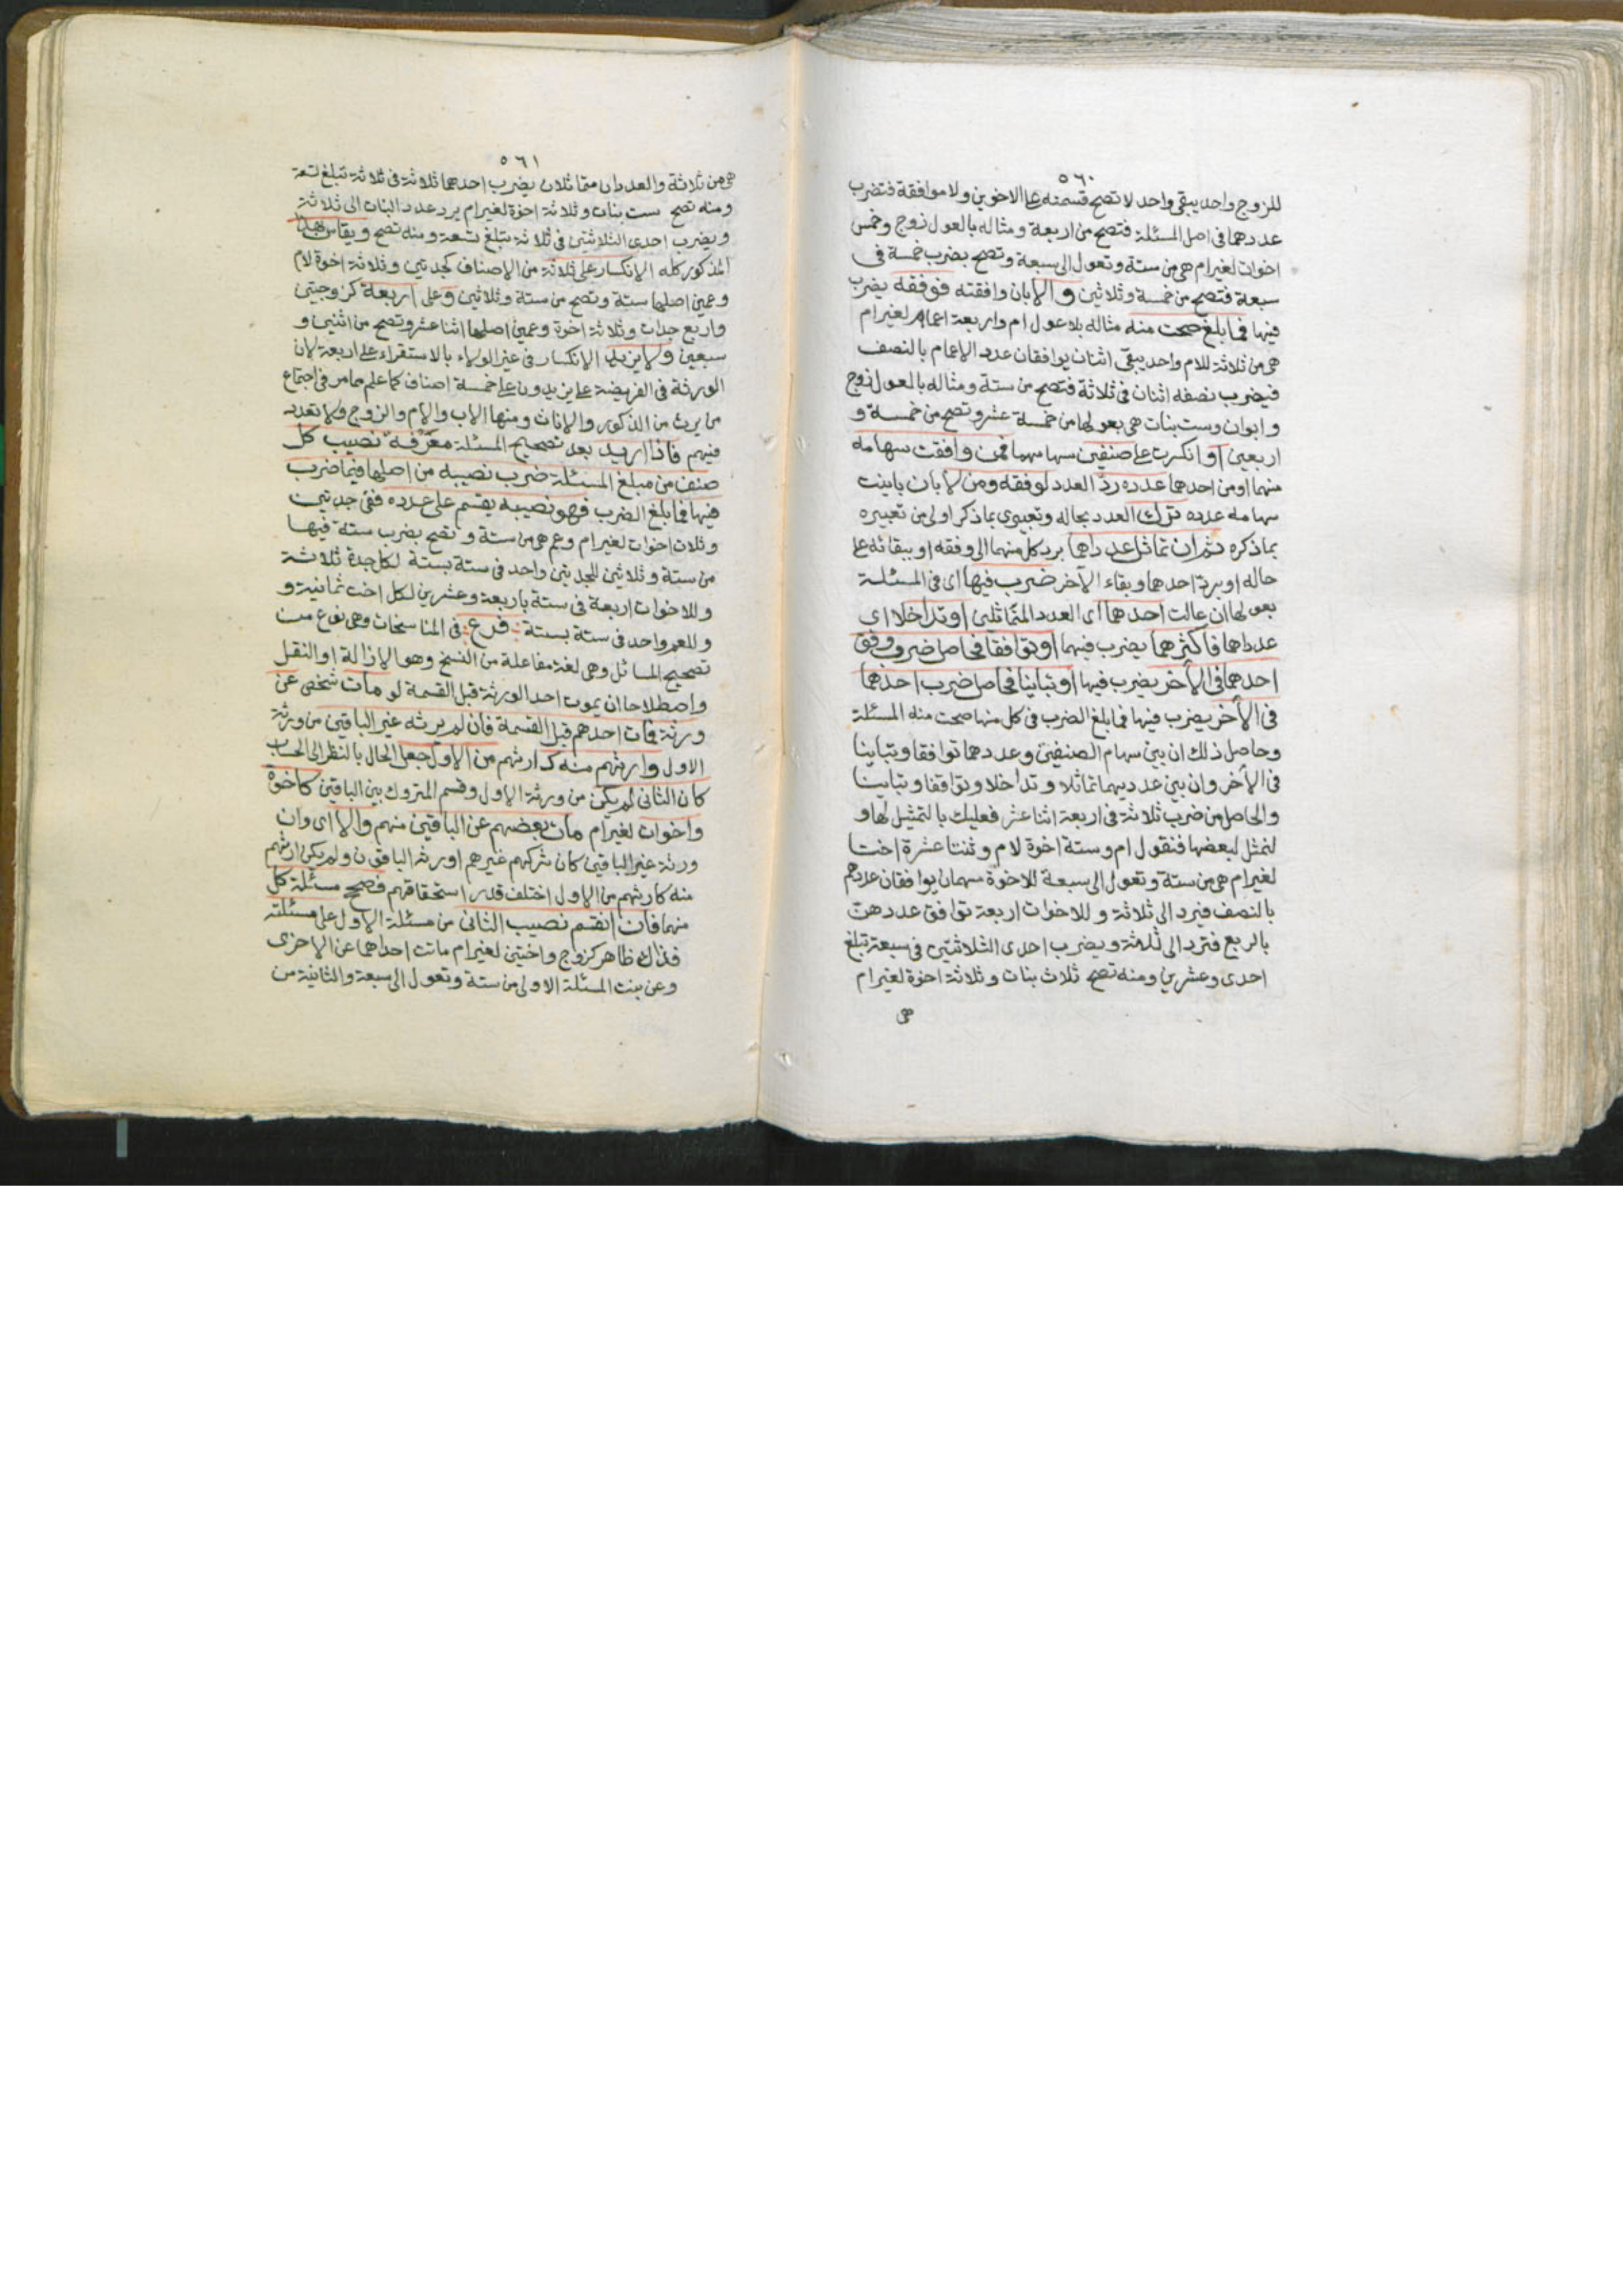 ٥٦٠
للزوج واحد يبقى واحد لا تصح قسمته على الاخوين ولا موافقة فتضرب
عددهما فى اصل المسئلة فتصح من اربعة ومثاله بالعول زوج وخمس
اخوات لغيرام هى من ستة وتعول الى سبعة وتصح بضرب خمسة فى
سبعة فتصح من خمسة وثلاثين والا بان وافقته فوفقه يضرب
فيها فما بلغ صحت منه مثاله بلا عول ام واربعة اعمام لغيرام
هى من ثلاثة للام واحد يبقى اثنان يوافقان عدد الاعمام بالنصف
فيضرب نصفه اثنان فى ثلاثة فتصح من ستة ومثاله بالعول زوج
وابوان وست بنات هى بعولها من خمسة عشر وتصح من خمسة و
اربعين او انكسرت على صنفين سهامهما فمن وافقت سهامه
منهما او من احدهما عدده رد العدد لوفقه ومن لا بان باينت
سهامه عدده ترك العدد بحاله وتعبيرى بما ذكر اولى من تعبيره
بما ذكره ثم ان تماثل عدداهما برد كل منهما الى وفقه او ببقائه على
حاله او برد احدهما وبقاء الآخر ضرب فيها اى فى المسئلة
بعولها ان عالت احدهما اى العدد المتماثلين او تداخلا اى
عدداهما فاكثرهما يضرب فيها او توافقا فحاصل ضرب وفق
احدهما فى الآخر يضرب فيها او تباينا فحاصل ضرب احدهما
فى الآخر يضرب فيها فما بلغ الضرب فى كل منها صحت منه المسئلة
وحاصل ذلك ان بين سهام الصنفين وعددهما توافقا وتباينا
فى الآخر وان بين عدديهما تماثلا وتداخلا وتوافقا وتباينا
والحاصل من ضرب ثلاثة فى اربعة اثنا عشر فعليك بالتمثيل لها و
لنمثل لبعضها فنقول ام وستة اخوة لام وثنتا عشرة اختا
لغيرام هى من ستة وتعول الى سبعة للاخوة سهمان يوافقان عددهم
بالنصف فيرد الى ثلاثة وللاخوات اربعة توافق عددهن
بالربع فترد الى ثلاثة ويضرب احدى الثلاثتين فى سبعة تبلغ
احدى وعشرين ومنه تصح ثلاث بنات وثلاثة اخوة لغيرام
هى
٥٦١
هى من ثلاثة والعددان متماثلان يضرب احدهما ثلاثة فى ثلاثة تبلغ تسعة
ومنه تصح ست بنات وثلاثة اخوة لغيرام يرد عدد البنات الى ثلاثة
ويضرب احدى الثلاثتين فى ثلاثة تبلغ تسعة ومنه تصح ويقاس بهذا
المذكور كله الانكسار على ثلاثة من الاصناف كجدتين وثلاثة اخوة لام
وعمين اصلها ستة وتصح من ستة وثلاثين وعلى اربعة كزوجتين
واربع جدات وثلاثة اخوة وعمين اصلها اثنا عشر وتصح من اثنين و
سبعين ولا يزيد الانكسار فى غير الولاء بالاستقراء على اربعة لان
الورثة فى الفريضة على يزيدون على خمسة اصناف كما علم مما مر فى اجتماع
من يرث من الذكور والاناث ومنها الاب والام والزوج ولا تعدد
فيهم فاذا اريد بعد تصحيح المسئلة معرفة نصيب كل
صنف من مبلغ المسئلة ضرب نصيبه من اصلها فيما ضرب
فيها فما بلغ الضرب فهو نصيبه يقسم على عدده ففى جدتين
وثلاث اخوات لغيرام وعم هى من ستة وتصح بضرب ستة فيها
من ستة وثلاثين للجدتين واحد فى ستة بستة لكل جدة ثلاثة
وللاخوات اربعة فى ستة باربعة وعشرين لكل اخت ثمانية و
وللعم واحد فى ستة بستة فرع فى المناسخات وهى نوع من
تصحيح المسائل وهى لغة مفاعلة من النسخ وهو الازالة او النقل
واصطلاحا ان يموت احد الورثة قبل القسمة لو مات شخص عن
ورثة فمات احدهم قبل القسمة فان لم يرثه غير الباقين من ورثة
الاول وارثهم منه كارثهم من الاول جعل الحال بالنظر الى الحساب
كان الثانى لم يكن من ورثة الاول وقسم المتروك بين الباقين كاخوة
واخوات لغيرام مات بعضهم عن الباقين منهم والا اى وان
ورثه غير الباقين كان شركهم غيرهم او ورثه الباقون ولم يكن ارثهم
منه كارثهم من الاول اختلف قدر استحقاقهم فصحح مسئلة كل
منهما فان انقسم نصيب الثانى من مسئلة الاول على مسئلته
فذاك ظاهر كزوج واختين لغيرام ماتت احداهما عن الاخرى
وعن بنت المسئلة الاولى من ستة وتعول الى سبعة والثانية من